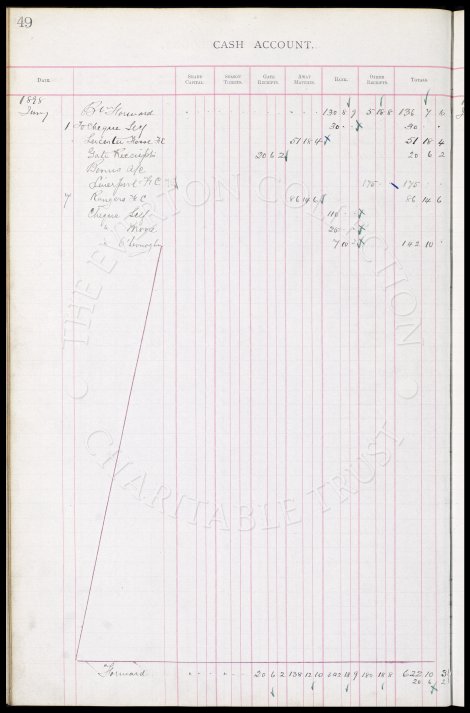 49
CASH ACCOUNT.
DATE. SHARE CAPITAL. SEASON TICKETS. GATE RECEIPTS. AWAY MATCHES. BANK. OTHER RECEIPTS. TOTALS.
1898
Forward 130 8 9 5 18 8 136 7
1 To Cheque Self 30 30
Leicester Fosse FC 51 18 4 51 18 4
Gate Receipts 20 6 2 20 6 2
Bonus a/c
Liverpool F.C. 175 175
7 Rangers F.C. 86 14 6 86 14 6
Cheque Self 110
" Wood
" 7 10 142 10
Forward 20 6 2 138 12 10 18 9 180 18 8 622 10 3
20 6 2
THE EVERTON COLLECTION
CHARITABLE TRUST